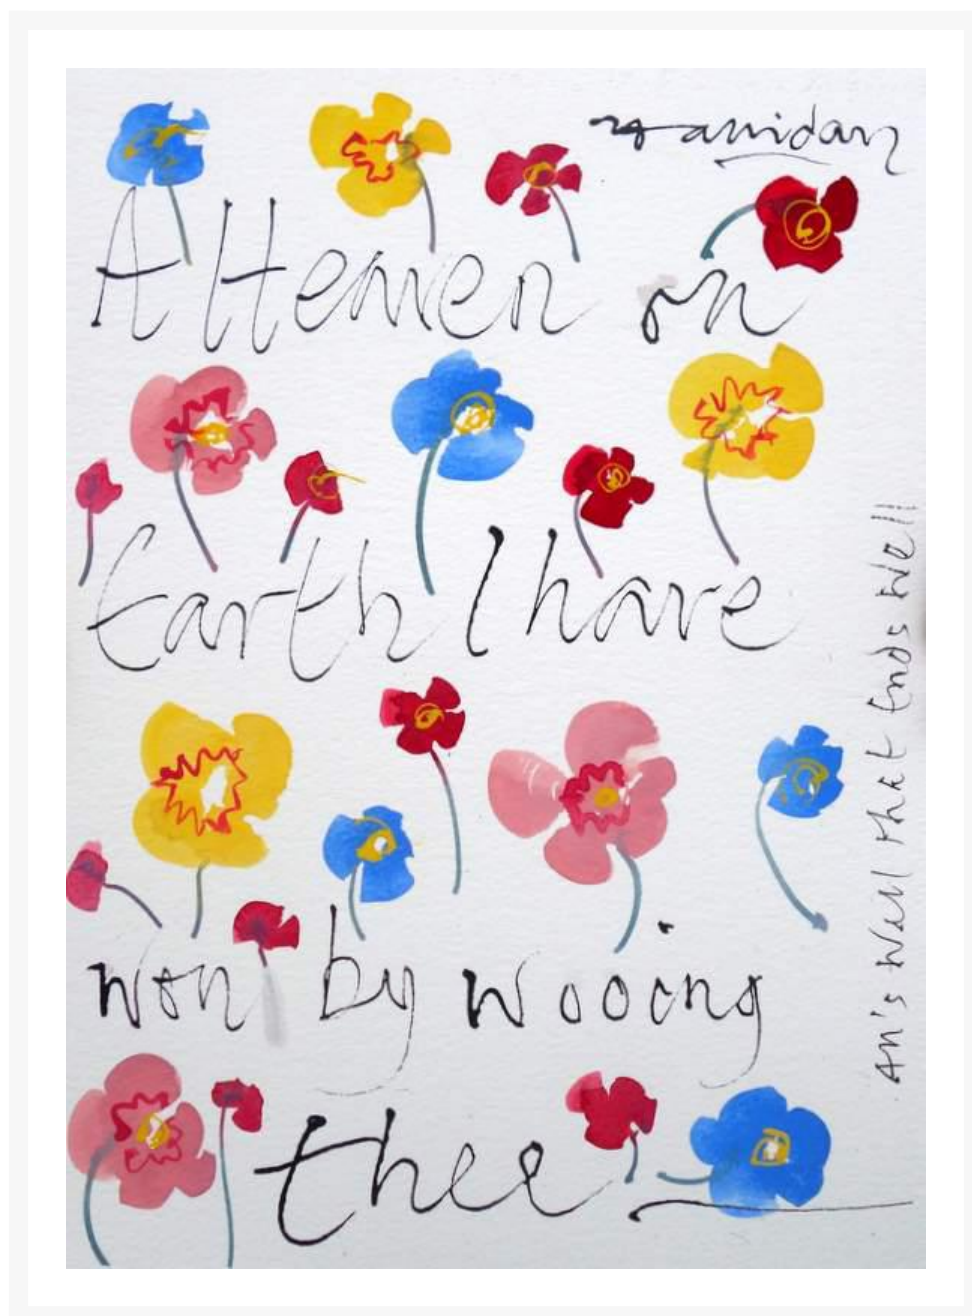 A Heaven on
Earth I have
won by wooing
thee
All's Well that Ends Well